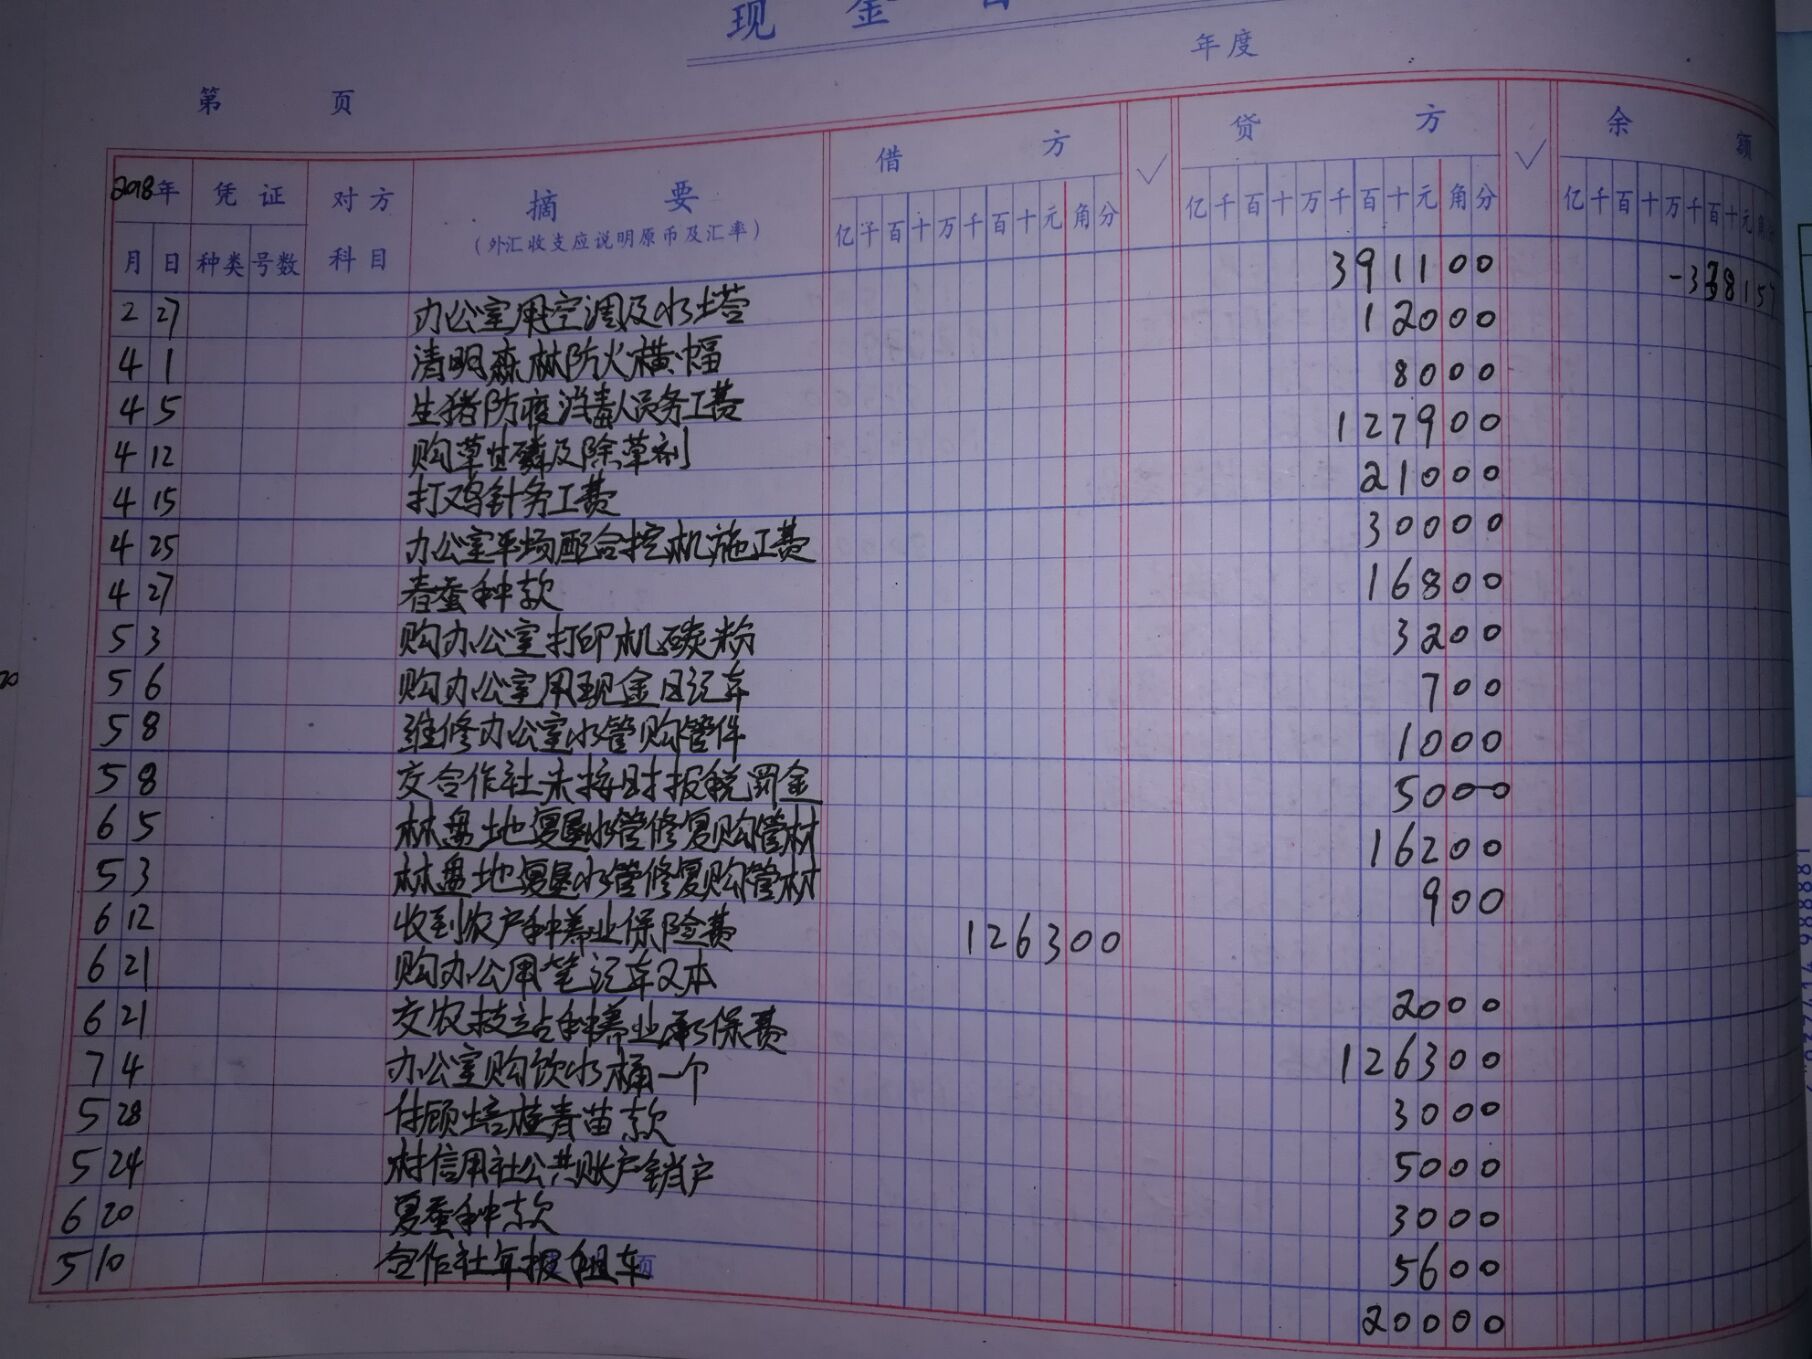 现 金
年度
第 页
2018年 凭证 对方 摘要 借方 √ 贷方 √ 余额
(外汇收支应说明原币及汇率)
月 日 种类 号数 科目 亿千百十万千百十元角分 亿千百十万千百十元角分 亿千百十万千百十元角分
2 27 办公室用空调及水塔 391100
4 1 清明森林防火横幅 12000
4 5 生猪防疫消毒人员务工费 8000
4 12 购草甘磷及除草剂 127900
4 15 打鸡针务工费 21000
4 25 办公室平场配合挖机施工费 30000
4 27 春蚕种款 16800
5 3 购办公室打印机碳粉 3200
5 6 购办公室用现金日记本 700
5 8 维修办公室水管购管件 1000
5 8 交合作社未按时报税罚金 5000
6 5 林盘地复垦水管修复购管材 16200
5 3 林盘地复垦水管修复购管材 900
6 12 收到农户种养业保险费 126300
6 21 购办公用笔记本又本 2000
6 21 交农技站种养业承保费 126300
7 4 办公室购饮水桶一个 3000
5 28 付顾培植青苗款 5000
5 24 村信用社公共账户销户 3000
6 20 夏蚕种款 5600
5 10 合作社年报租车 20000